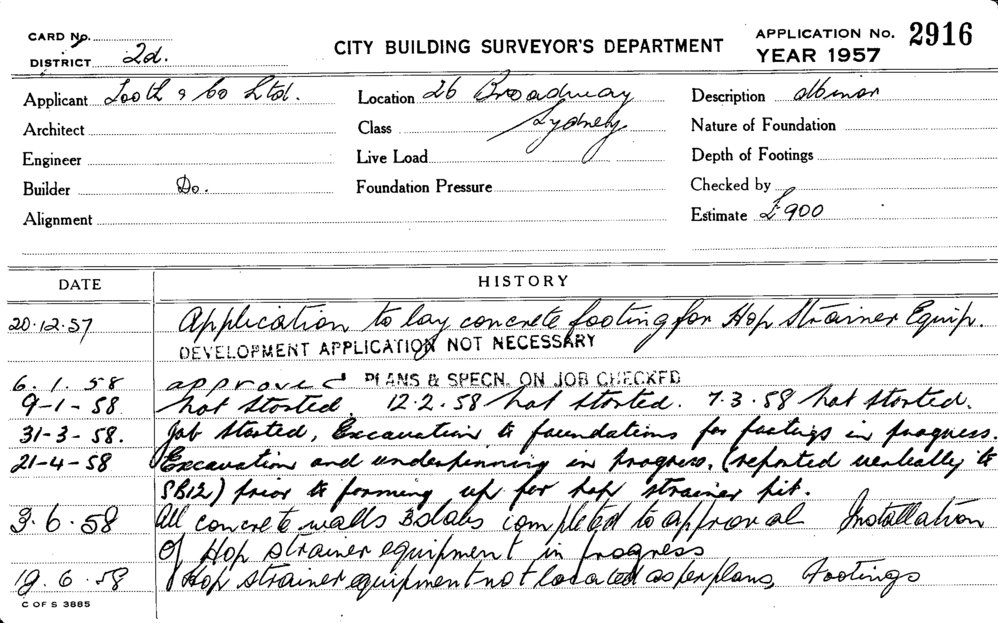 CARD No.
DISTRICT 2d.
CITY BUILDING SURVEYOR'S DEPARTMENT
APPLICATION No. 2916
YEAR 1957
Applicant Tooth & Co Ltd.
Location 26 Broadway
Sydney
Description Minor
Architect
Class
Nature of Foundation
Engineer
Live Load
Depth of Footings
Builder Do.
Foundation Pressure
Checked by
Alignment
Estimate £900
DATE HISTORY
20.12.57 Application to lay concrete footing for Hop Strainer Equip.
DEVELOPMENT APPLICATION NOT NECESSARY
6.1.58 approved PLANS & SPECN. ON JOB CHECKED
9-1-58 Not started. 12.2.58 Not started. 7.3.58 Not started.
31-3-58. Job started, Excavation & foundations for footings in progress.
21-4-58 Excavation and underpinning in progress, (reported verbally to
SB12) prior to forming up for hop strainer pit.
3.6.58 All concrete walls & slabs completed to approval Installation
of Hop strainer equipment in progress
19.6.58 Hop strainer equipment not located as per plans, Footings
C OF S 3885